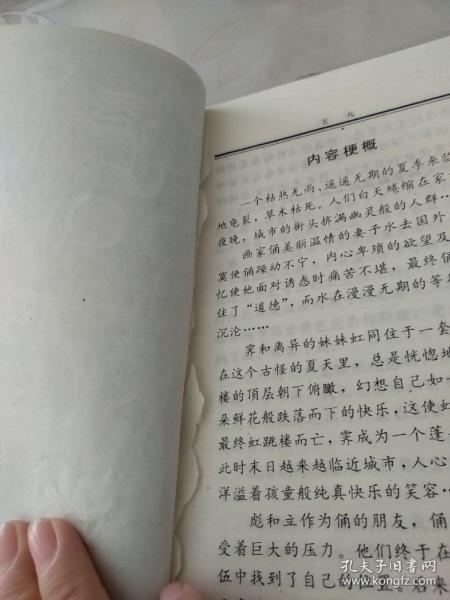 玄鸟
内容梗概
一个枯热无雨、遥遥无期的夏季来临
地龟裂，草木枯死。人们白天蜷缩在家
夜晚，城市的街头挤满幽灵般的人群…
画家俑美丽温情的妻子水去国外
寞使俑躁动不宁，内心卑琐的欲望及
忆使他面对诱惑时痛苦不堪，最终俑
住了“道德”，而水在漫漫无期的等
沉沦……
霁和离异的妹妹虹同住于一套
在这个古怪的夏天里，总是恍惚地
楼的顶层朝下俯瞰，幻想自己如一
朵鲜花般跌落而下的快乐，这使虹
最终虹跳楼而亡，霁成为一个蓬
此时末日越来越临近城市，人心
洋溢着孩童般纯真快乐的笑容…
彪和立作为俑的朋友，俑
受着巨大的压力。他们终于在
伍中找到了自己的位置。后来
孔夫子旧书网
kongfz.com